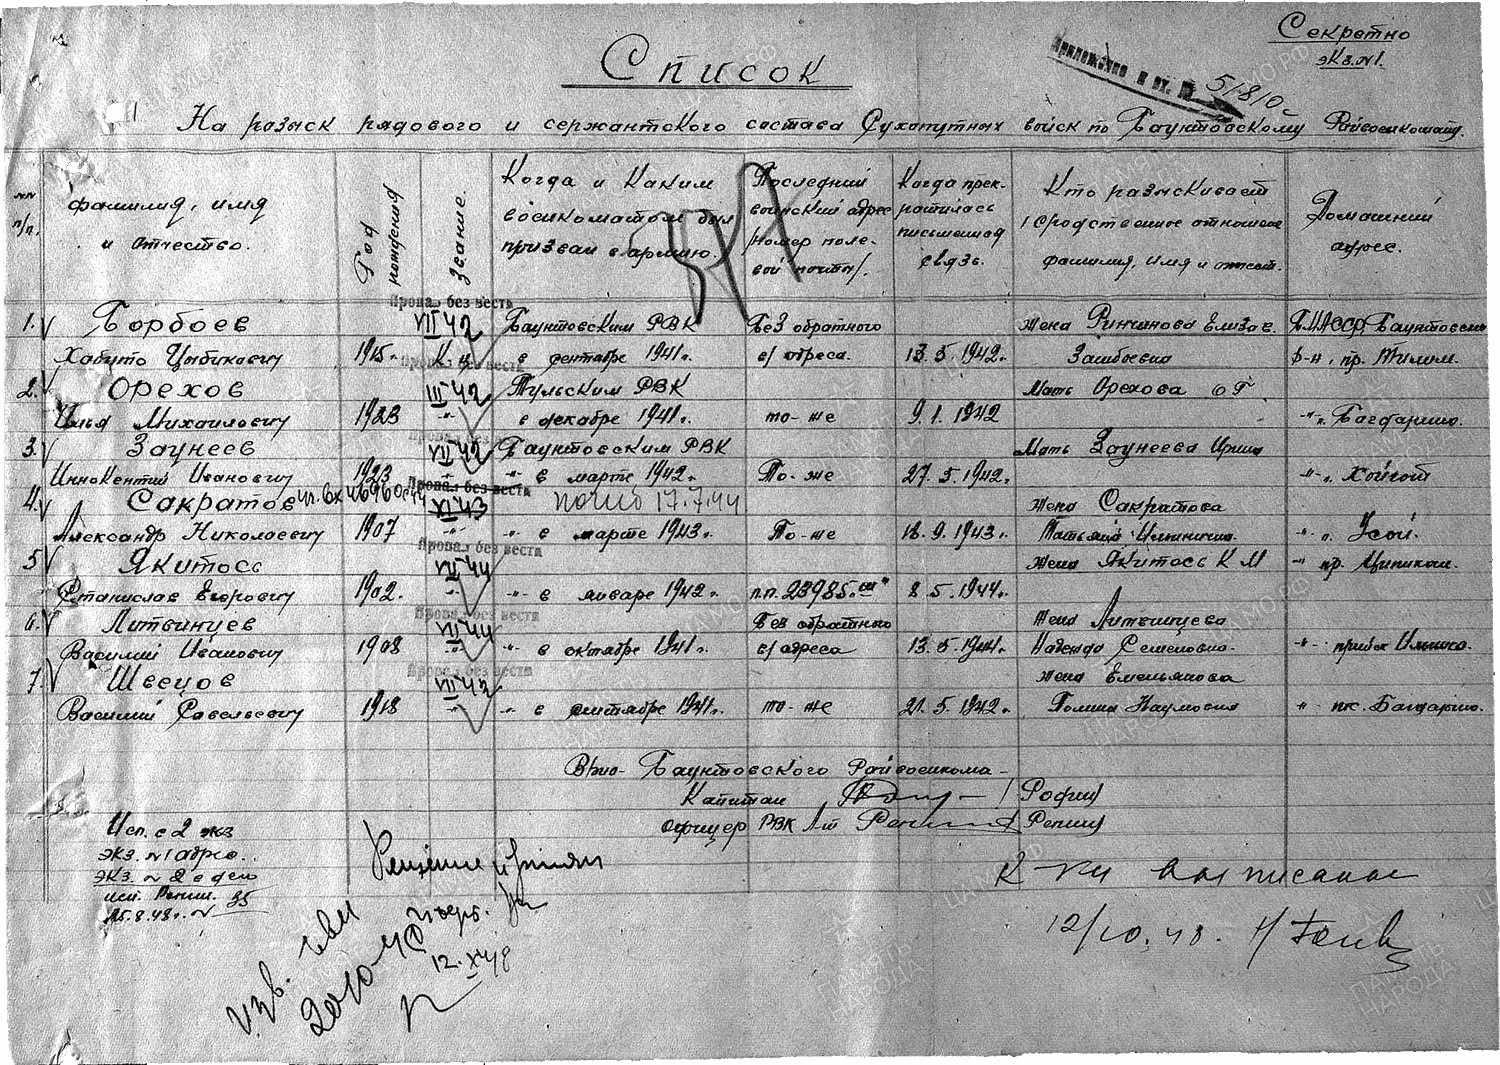 Секретно
экз. №1.
Список
Приложение к вх. №
51810
На розыск рядового и сержантского состава Сухопутных войск по Баунтовскому Райвоенкомату.
№№ п/п.
фамилия, имя и отчество.
Год рождения
Звание.
Когда и каким военкоматом был призван в армию.
Последний воинский адрес /номер полевой почты/.
Когда прекратилась письменная связь.
Кто разыскивает /родственное отношение фамилия, имя и отчест.
Домашний адрес.
Пропал без вести
1. Борбоев VII 42 Баунтовским РВК Без обратного жена Ринчинова Елизав. БМАССР, Баунтовский
Хабуто Цыбикович 1915г. в сентябре 1941г. адреса. 13.5.1942г. р-н, пр.
Пропал без вести
2. Орехов III 42 Тульским РВК Мать Орехова
Илья Михайлович 1923 -"- в декабре 1941г. то-же 9.1.1942 -"- Багдарино.
Пропал без вести
3. Заунеев VII 42 Баунтовским РВК Мать Заунеева Ирина
Иннокентий Иванович 1923 -"- -"- в марте 1942г. То-же 27.5.1942г. -"- Хойгот
Пропал без вести
4. Сакратов XI 43 погиб 17.7.44 жена Сакратова
Александр Николаевич 1907 -"- -"- в марте 1943г. То-же 18.9.1943г. Татьяна -"- Усой.
Пропал без вести
5 Якитось VII 44 жена Якитось К М -"- пр. Ципикан.
Станислав Егорович 1902. -"- -"- в январе 1942г. п.п. 23985 8.5.1944г.
Пропал без вести
6. Литвинцев VII 44 Без обратного жена Литвинцева
Василий Иванович 1908 -"- -"- в октябре 1941г. адреса 13.5.1944г. Надежда Семеновна. -"- прииск
Пропал без вести
7. Швецов VII 42 жена Емельянова
Василий Савельевич 1918 -"- -"- в сентябре 1941г. то-же 21.5.1942г. Галина Наумовна -"- пос. Багдарино.
Врио Баунтовского Райвоенкома
Капитан /Рофин/
Офицер РВК Лт /Репин/
Исп. в 2 экз
экз. №1 адрес.
экз. №2 в дело
исп. Репин.
15.8.48г. № 35
К-ки выписаны
12/10.48.
12.X 48
20 10-48
ПАМЯТЬ НАРОДА
ЦАМО.РФ